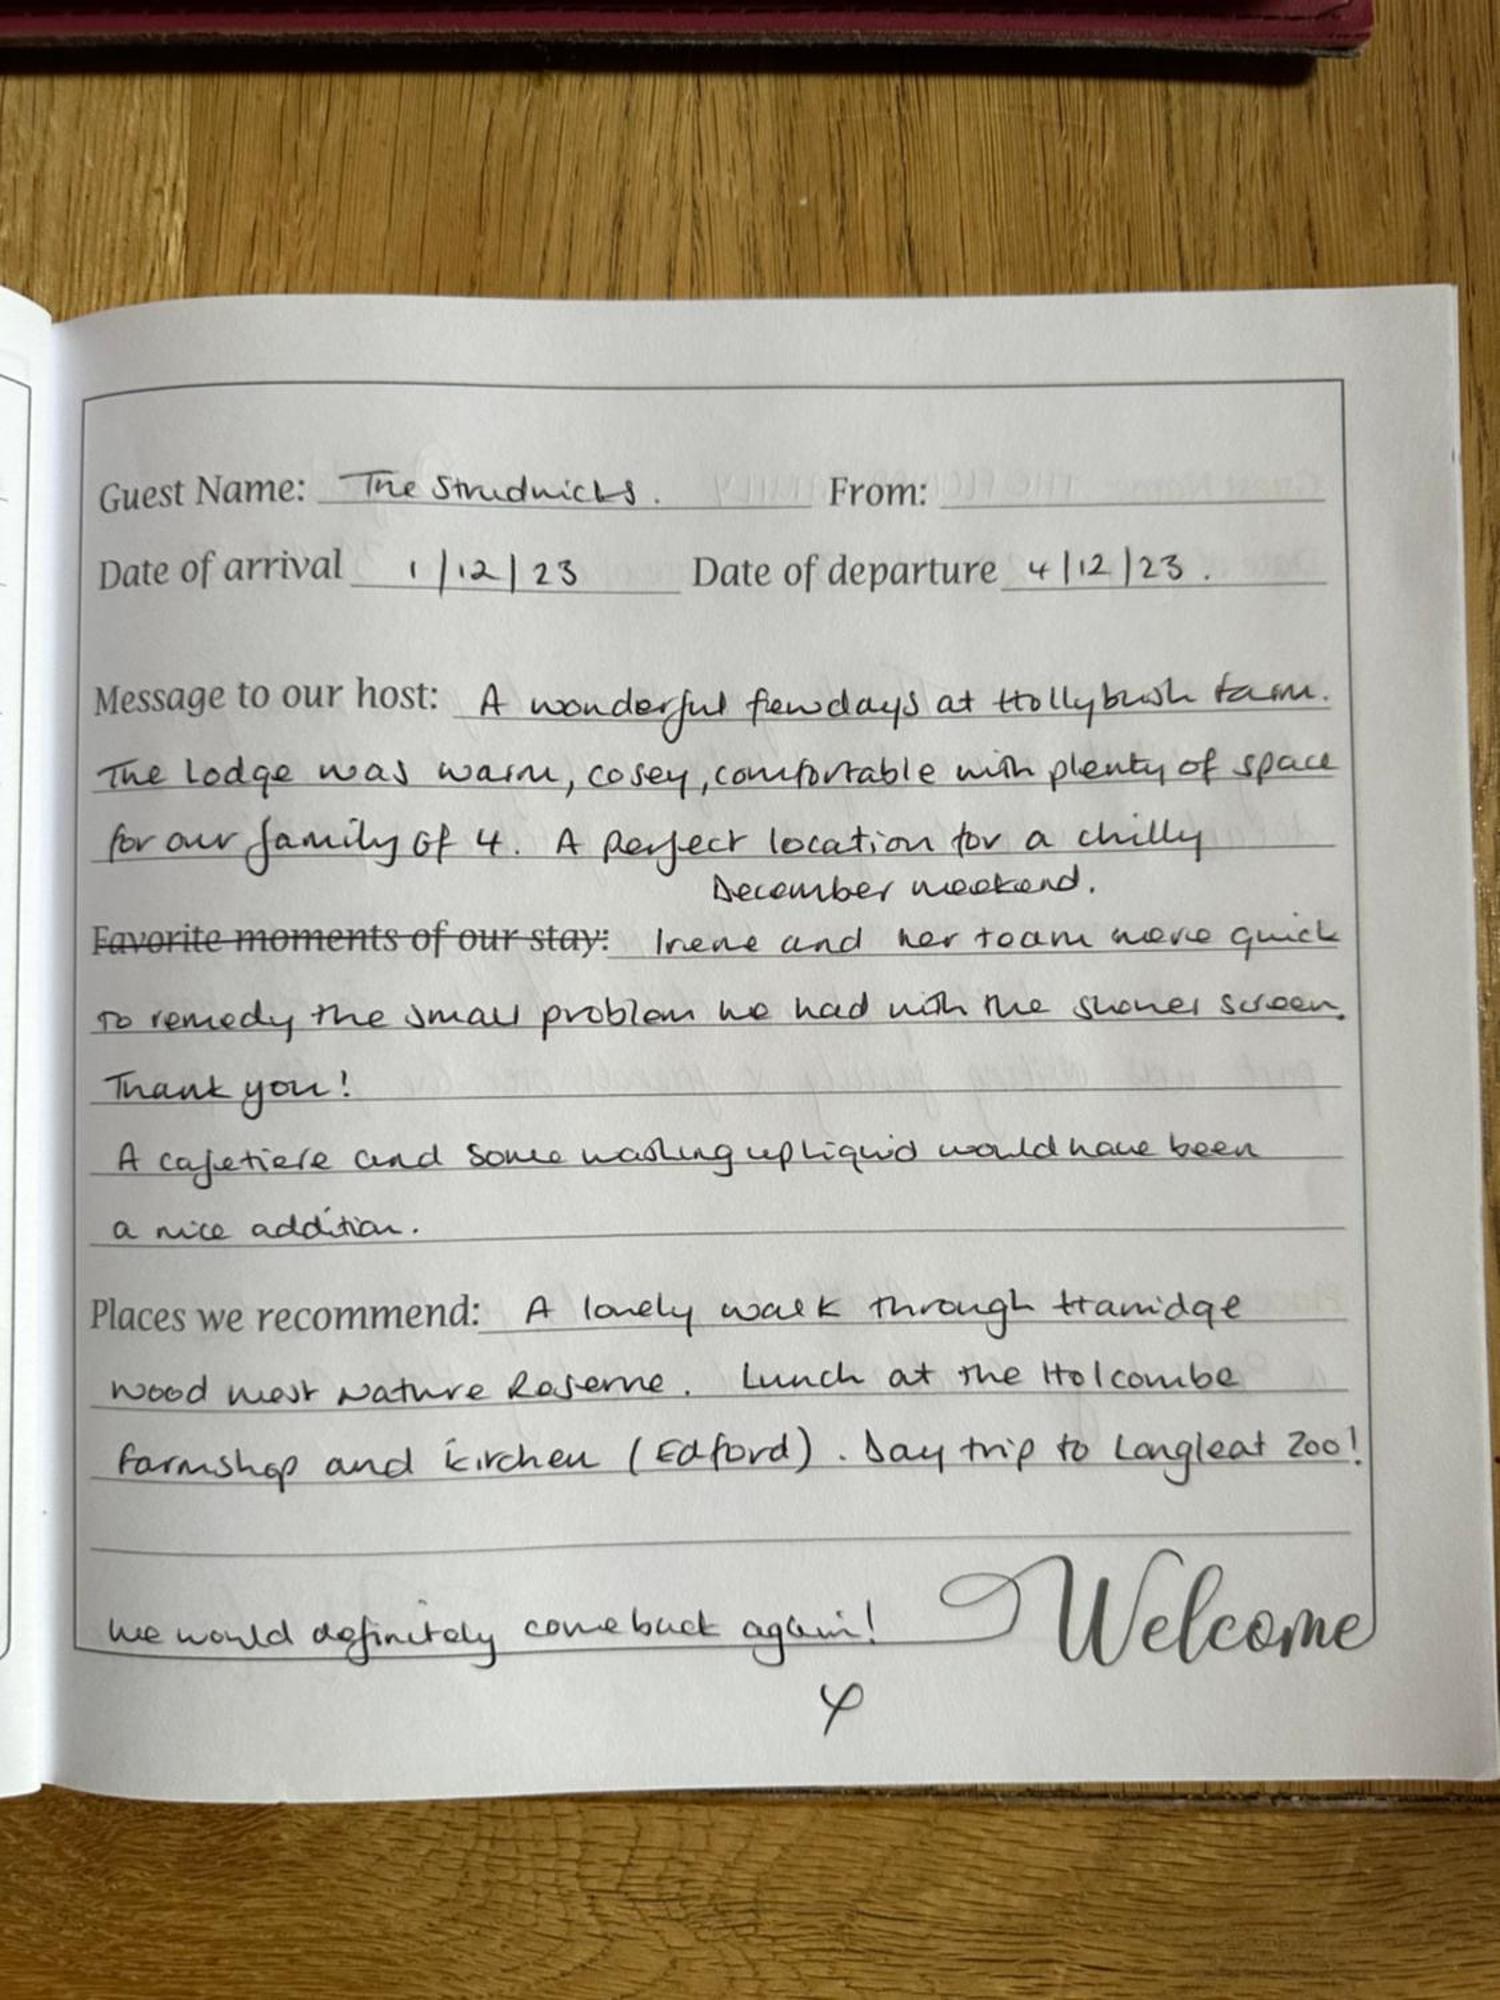 Guest Name: The Strudwicks. From:
Date of arrival 1/12/23 Date of departure 4/12/23.
Message to our host: A wonderful few days at Hollybush farm.
The Lodge was warm, cosey, comfortable with plenty of space
for our family of 4. A perfect location for a chilly
December weekend.
Favorite moments of our stay: Irene and her team were quick
to remedy the small problem we had with the shower screen.
Thank you!
A cafetiere and some washing up liquid would have been
a nice addition.
Places we recommend: A lovely walk through Harridge
Wood West Nature Reserve. Lunch at the Holcombe
farmshop and kitchen (Edford). Day trip to Longleat Zoo!
We would definitely come back again! Welcome
x